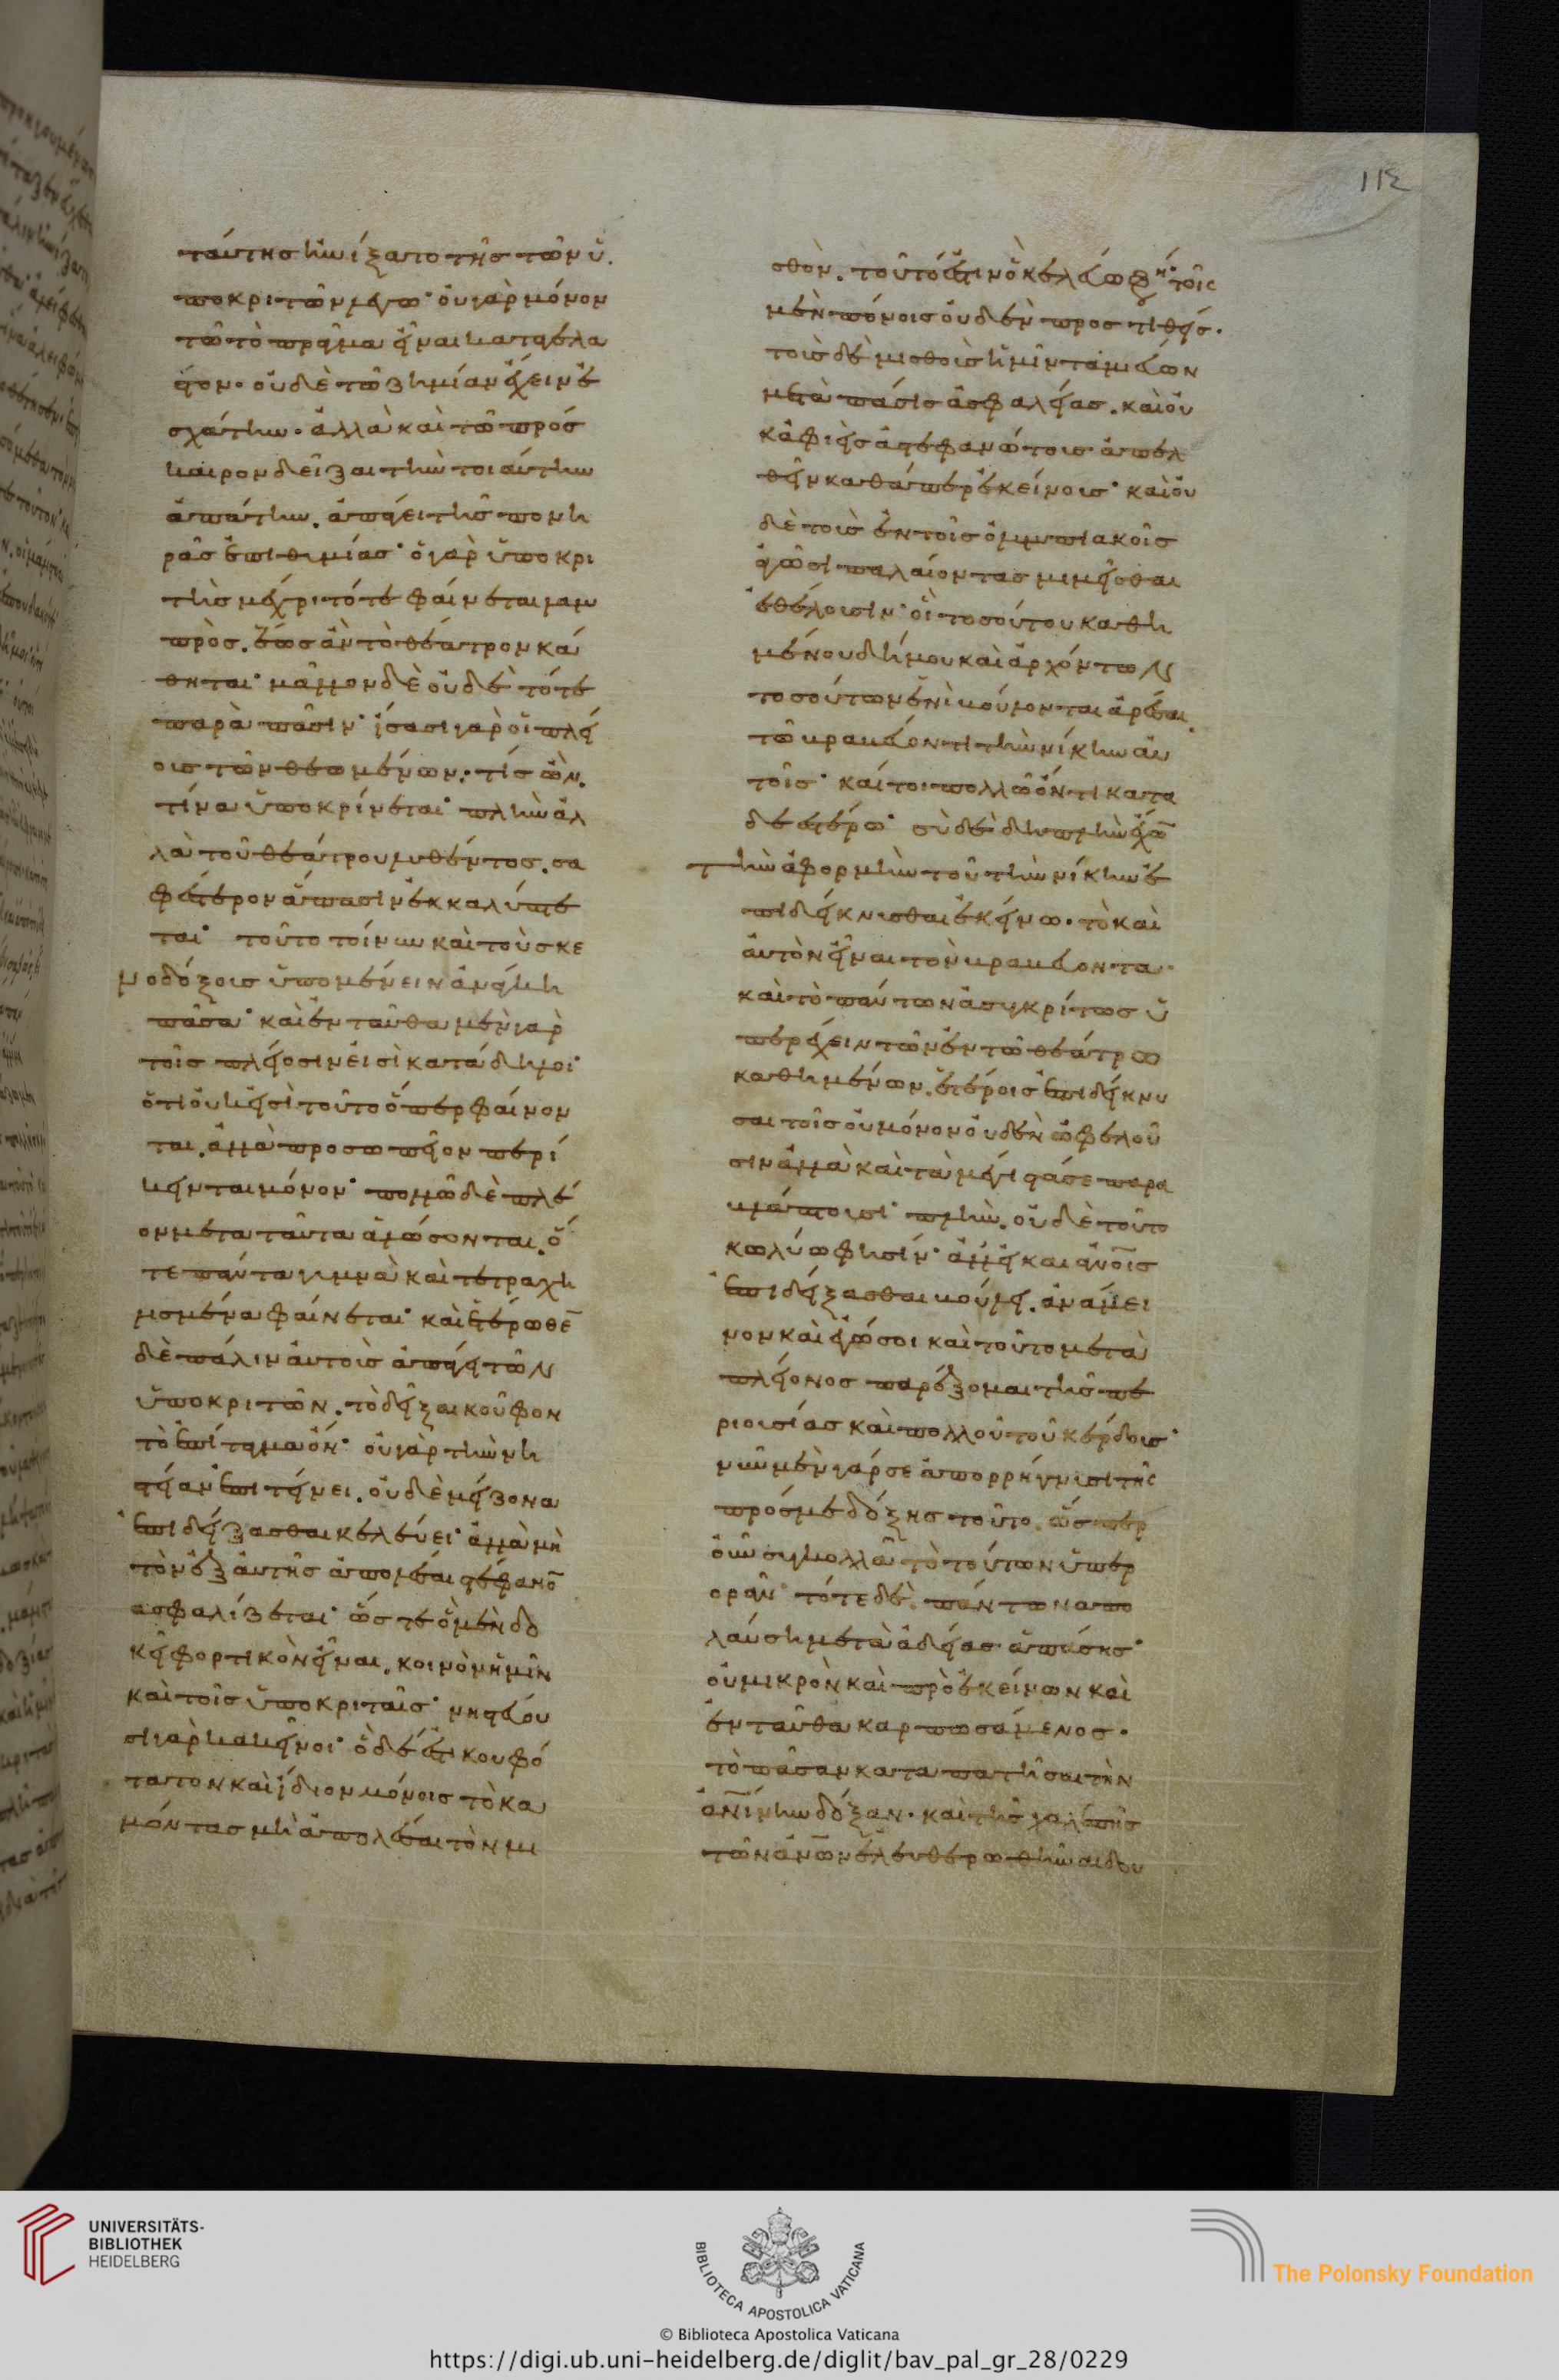 ταύτης ἢν ἴξαπο τῆς τῶν ὑ
ποκριτῶν λέγω· οὐ γὰρ μόνον
τῶ τὸ πρᾶγμα εἶναι καταγέλα
στον· οὐδὲ τῶ ζημίαν ἔχειν ἐ
σχάτην· ἀλλὰ καὶ τῶ πρὸς
καιρον δεῖξαι τὴν τοιαύτην
ἀπάτην. ἀπάγει τῆς πονη
ρᾶς ἐπιθυμίας· ὁ γὰρ ὑποκρι
τὴς μέχρι τότε φαίνεται λαμ
πρὸς. ἕως ἂν τὸ θέατρον κά
θηται· μᾶλλον δὲ οὐδὲ τότε
παρὰ πᾶσιν· ἴσασι γὰρ οἱ πλεί
ους τῶν θεωμένων. τίς ὢν.
τίνα ὑποκρίνεται· πλὴν ἀλ
λὰ τοῦ θεάτρου λυθέντος. σα
φέστερον ἅπασιν ἐκκαλύπτε
ται· τοῦτο τοίνυν καὶ τοὺς κε
νοδόξους ὑπομένειν ἀνάγκη
πᾶσα· καὶ ἐνταῦθα μὲν γὰρ
τοῖς πλείοσιν εἰσὶ κατάδηλοι·
ὅτι οὐκ εἰσὶ τοῦτο ὅπερ φαίνον
ται. ἀλλὰ προσωπεῖον περί
κεινται μόνον· πολλῶ δὲ πλέ
ον μετα ταῦτα ἁλώσονται. ὅ
τε πάντα γυμνὰ καὶ τετραχη
λισμένα φαίνεται· καὶ ἑτέρωθεν
δὲ πάλιν αὐτοὺς ἀπάγει τῶν
ὑποκριτῶν. τὸ δεῖξαι κοῦφον
τὸ ἐπίταγμα ὄν· οὐ γὰρ τὴν νη
στείαν ἐπιτείνει. οὐδὲ μείζονα
ἐπιδείξασθαι κελεύει· ἀλλὰ μὴ
τὸν ἐξ αὐτῆς ἀπολέσαι στέφανον
ασφαλίζεται· ὥστε ὃ μὲν δο
κεῖ φορτικὸν εἶναι. κοινὸν ἡμῖν
καὶ τοῖς ὑποκριταῖς· νηστεύου
σι γὰρ κακεῖνοι· ὃ δέ ἐστι κουφό
τατον καὶ ἴδιον μόνοις τὸ κα
μόντας μὴ ἀπολέσαι τὸν μι
σθὸν. τοῦτό ἐστιν ὃ κελεύω φησίν· τοῖς
μὲν πόνοις οὐδὲν προστιθείς·
τοὺς δὲ μισθοὺς ἡμῖν ταμιεύων
μετὰ πάσης ἀσφαλείας. καὶ οὐ
κ ἀφιεὶς ἀστεφανώτους ἀπελ
θεῖν καθάπερ ἐκείνους· καὶ οὐ
δὲ τοὺς ἐν τοῖς ὀλυμπιακοῖς
ἀγῶσι παλαίοντας μιμεῖσθαι
ἐθέλουσιν· οἳ τοσούτου καθη
μένου δήμου καὶ ἀρχόντων
τοσούτων ἑνὶ μόνον ται ἀρέσαι.
τῶ βραβεύοντι τὴν νίκην αὐ
τοῖς· καίτοι πολλῶ ὄντι κατα
δεεστέρω· σὺ δὲ διπλὴν ἔχων
τὴν ἀφορμὴν τοῦ τὴν νίκην ἐ
πιδείκνυσθαι ἐκείνω· τὸ καὶ
αὐτὸν εἶναι τὸν βραβεύοντα·
καὶ τὸ πάντων ἀσυγκρίτως ὑ
περέχειν τῶν ἐν τῶ θεάτρω
καθημένων. ἑτέροις ἐπιδείκνυ
σαι τοῖς οὐ μόνον οὐδὲν ὠφελοῦ
σιν ἀλλὰ καὶ τὰ μέγιστά σε παρα
βλάπτουσι· πλὴν. οὐδὲ τοῦτο
κωλύω φησίν· ἀλλ' εἰ και ἀνοις
ἐπιδείξασθαι βούλει. ἀνάμει
νον καὶ ἐγώ σοι καὶ τοῦτο μετὰ
πλείονος παρέξομαι τῆς πε
ριουσίας καὶ πολλοῦ τοῦ κέρδους·
νῦν μὲν γάρ σε ἀπορρήγνυσι τῆς
πρός με δόξης τοῦτο. ὥσπερ
οὖν συγκολλᾶ τὸ τούτων ὑπερ
ορᾶν· τότε δὲ. πάντων απο
λαύση μετὰ ἀδείας ἁπάσης·
οὐ μικρὸν καὶ πρὸ ἐκείνων καὶ
ἐνταῦθα καρπωσάμενος·
τὸ πᾶσαν καταπατῆσαι τὴν
ἀνίνην δόξαν. καὶ τῆς χαλεπῆς
τῶν ἀνων ἐλευθερωθῆναι δου
UNIVERSITÄTS-
BIBLIOTHEK
HEIDELBERG
BIBLIOTECA APOSTOLICA VATICANA
The Polonsky Foundation
© Biblioteca Apostolica Vaticana
https://digi.ub.uni-heidelberg.de/diglit/bav_pal_gr_28/0229